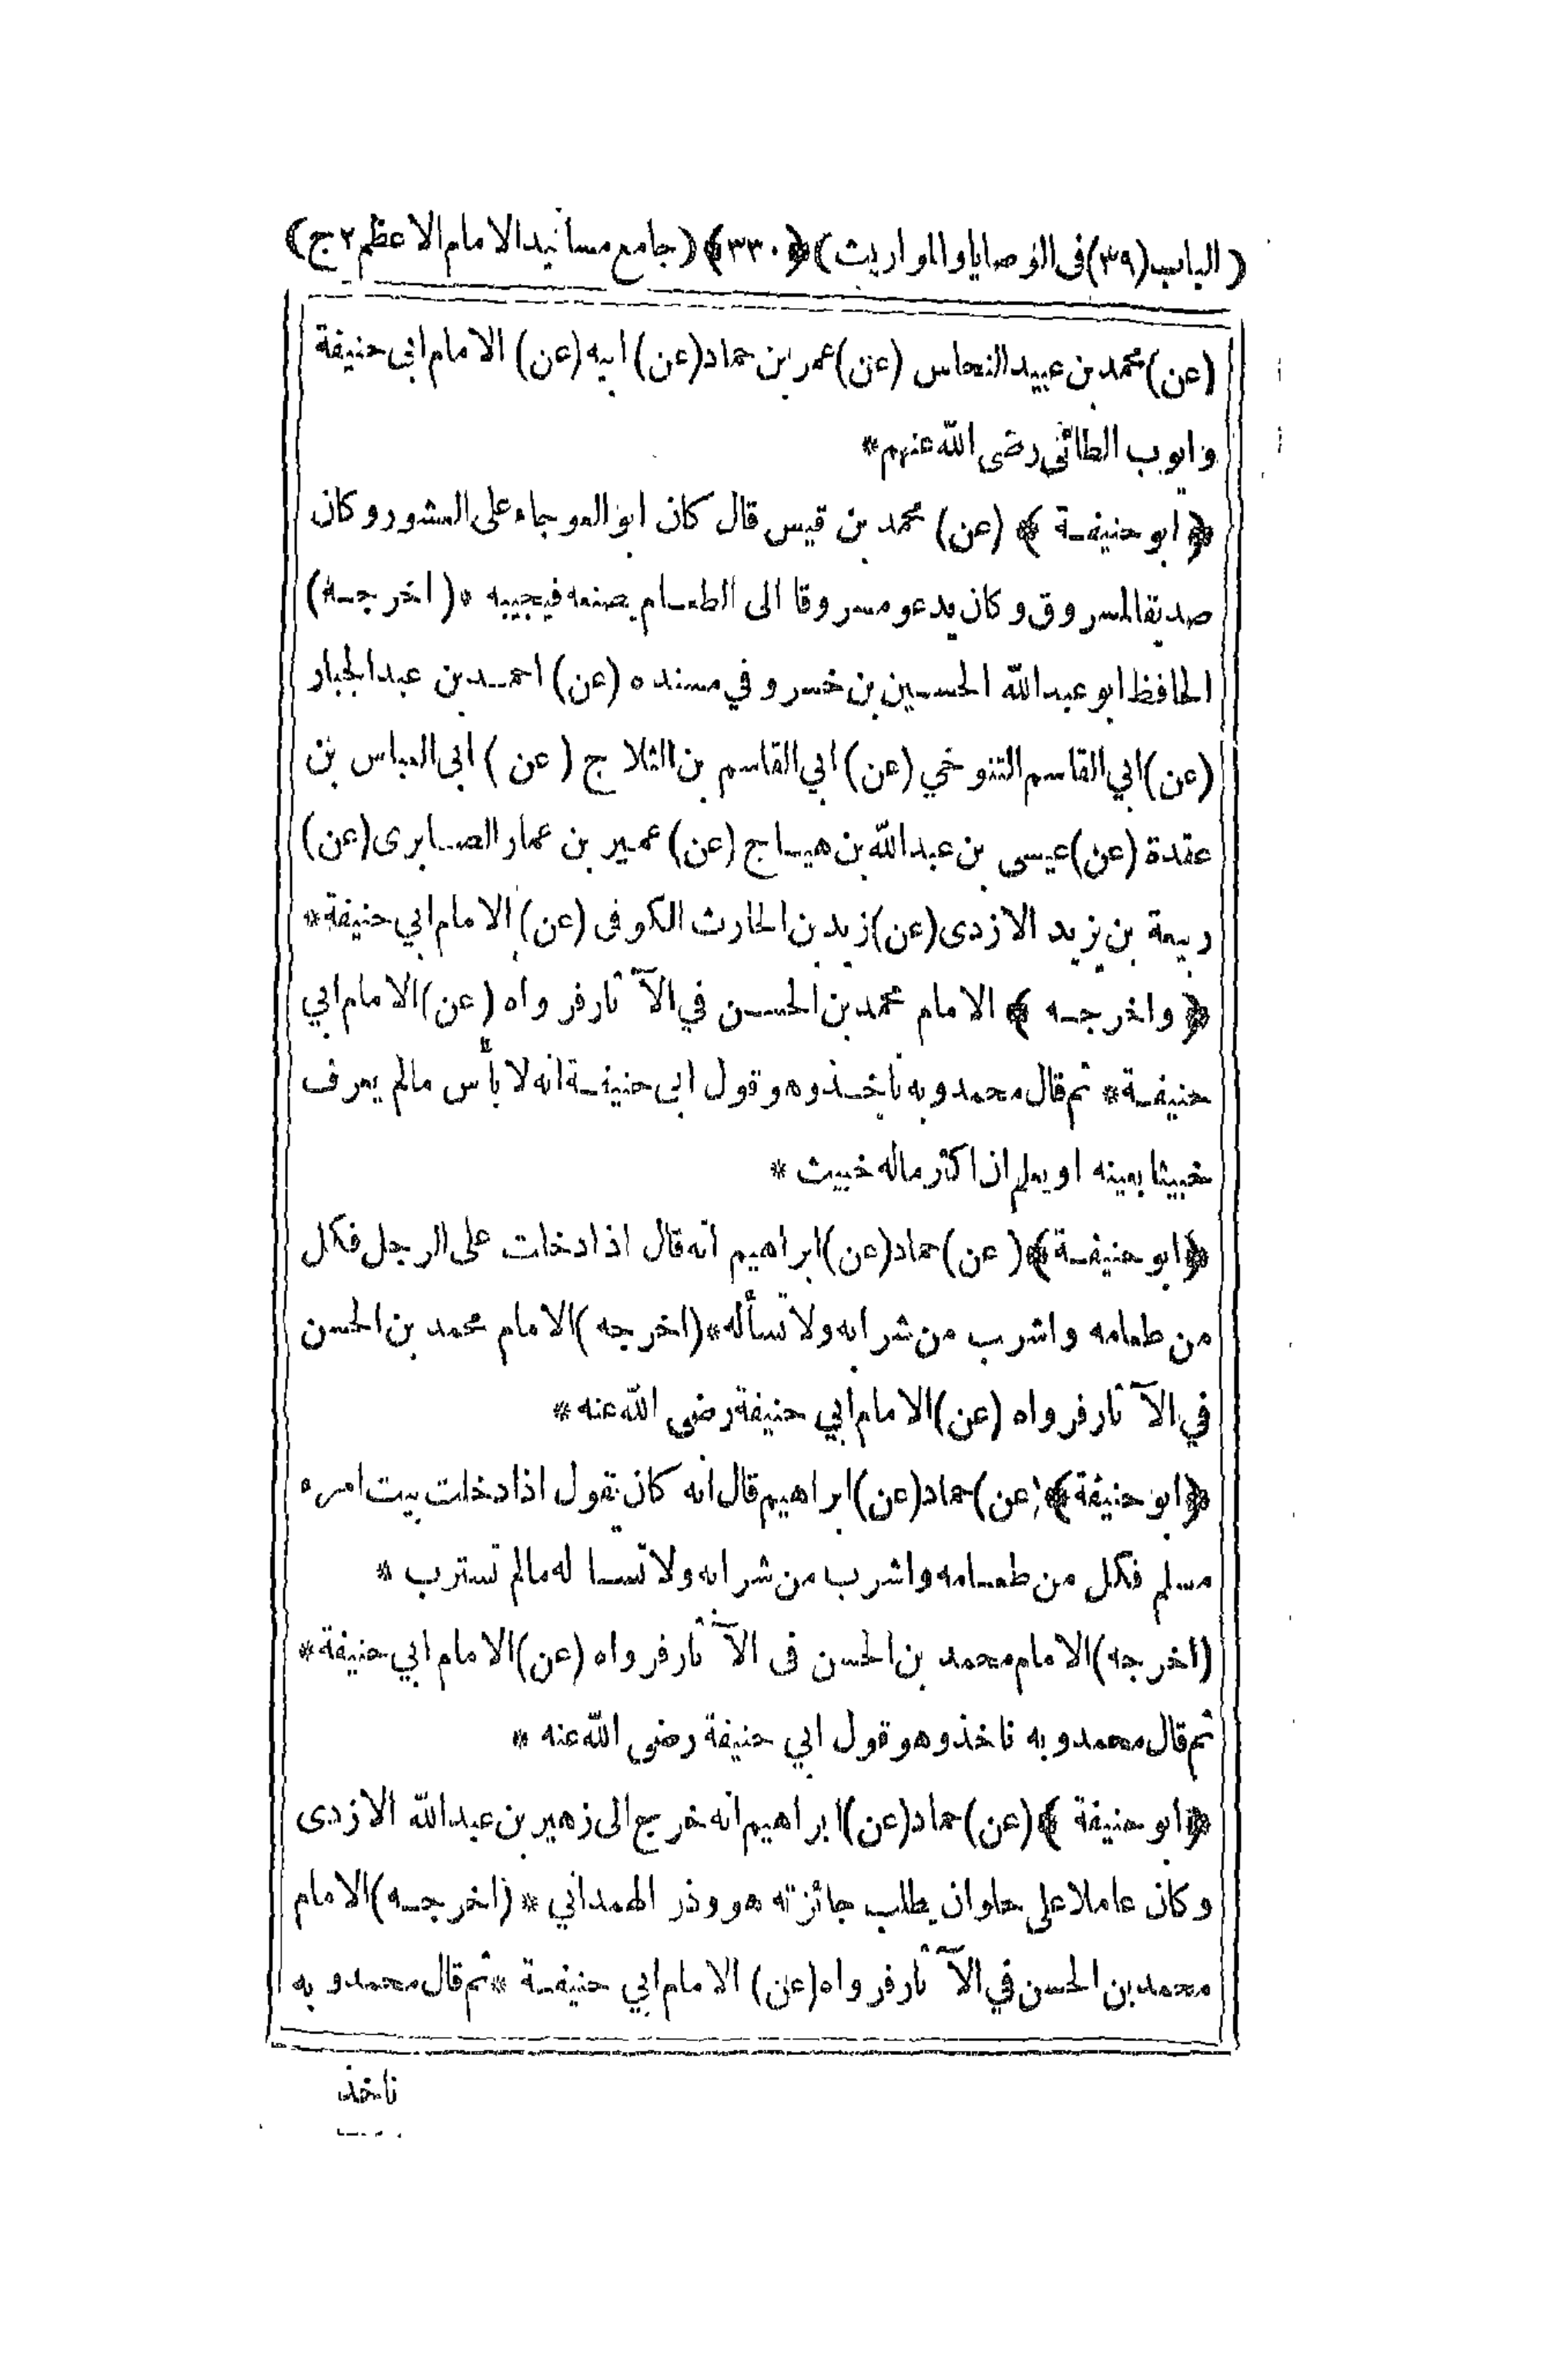 (الباب(٣٩)فى الوصايا والمواريث)﴿٣٣٠﴾(جامع مسانيد الامام الاعظم ج٢)
(عن)محمد بن عبيد النحاس (عن)عمر بن حماد(عن) ابيه(عن) الامام ابى حنيفة
وايوب الطائى رضى الله عنهم*
﴿ ابو حنيفة ﴾ (عن) محمد بن قيس قال كان ابو العوجاء على العشور وكان
صديقا لمسروق وكان يدعو مسروقا الى الطعام يصنعه فيجيبه *(اخرجه)
الحافظ ابو عبد الله الحسين بن خسرو في مسنده (عن) احمد بن عبد الجبار
(عن)ابي القاسم التنوخي (عن)ابي القاسم بن الثلاج (عن) ابى العباس بن
عقدة (عن)عيسى بن عبد الله بن هياج (عن)عمير بن عمار الصابرى(عن)
ربيعة بن يزيد الازدى(عن)زيد بن الحارث الكوفى (عن)الامام ابي حنيفة*
﴿ واخرجه ﴾ الامام محمد بن الحسن في الآثار فرواه (عن)الامام ابي
حنيفة* ثم قال محمد وبه ناخذ وهو قول ابى حنيفة انه لا بأس مالم يعرف
خبيثا بعينه او يعلم ان اكثر ماله خبيث *
﴿ابو حنيفة﴾(عن)حماد(عن)ابراهيم انه قال اذا دخلت على الرجل فكل
من طعامه واشرب من شرابه ولا تسأله*(اخرجه)الامام محمد بن الحسن
في الآثار فرواه (عن)الامام ابي حنيفة رضى الله عنه *
﴿ابو حنيفة﴾(عن)حماد(عن)ابراهيم قال انه كان يقول اذا دخلت بيت امرء
مسلم فكل من طعامه واشرب من شرابه ولا تسا له مالم تسترب *
(اخرجه)الامام محمد بن الحسن فى الآثار فرواه (عن)الامام ابي حنيفة*
ثم قال محمد وبه ناخذ وهو قول ابي حنيفة رضى الله عنه *
﴿ابو حنيفة ﴾(عن)حماد(عن)ابراهيم انه خرج الى زهير بن عبد الله الازدى
وكان عاملا على حلوان يطلب جائزته هو وذر الهمداني *(اخرجه)الامام
محمد بن الحسن في الآثار فرواه(عن) الامام ابي حنيفة *ثم قال محمد وبه
ناخذ